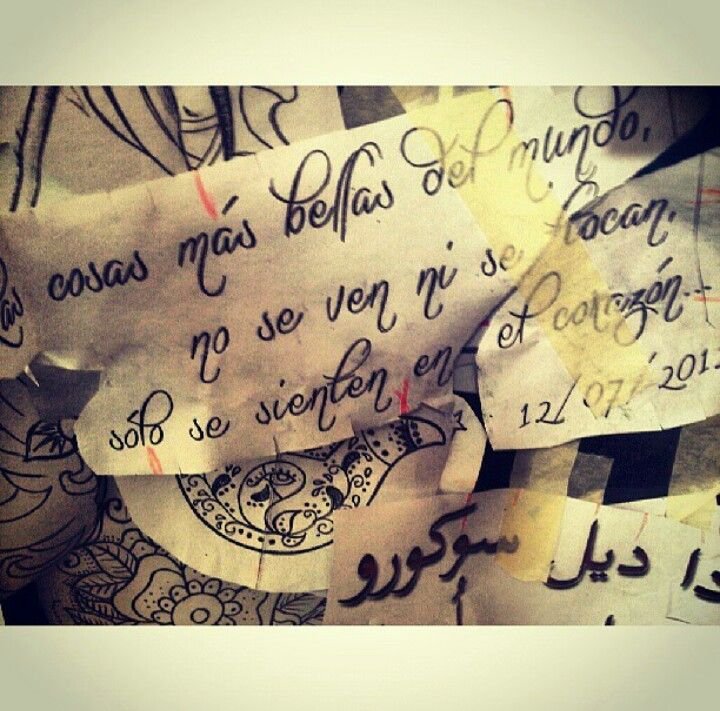 las cosas más bellas del mundo,
no se ven ni se tocan,
sólo se sienten en el corazón...
12/07/201
دا ديل سوكورو